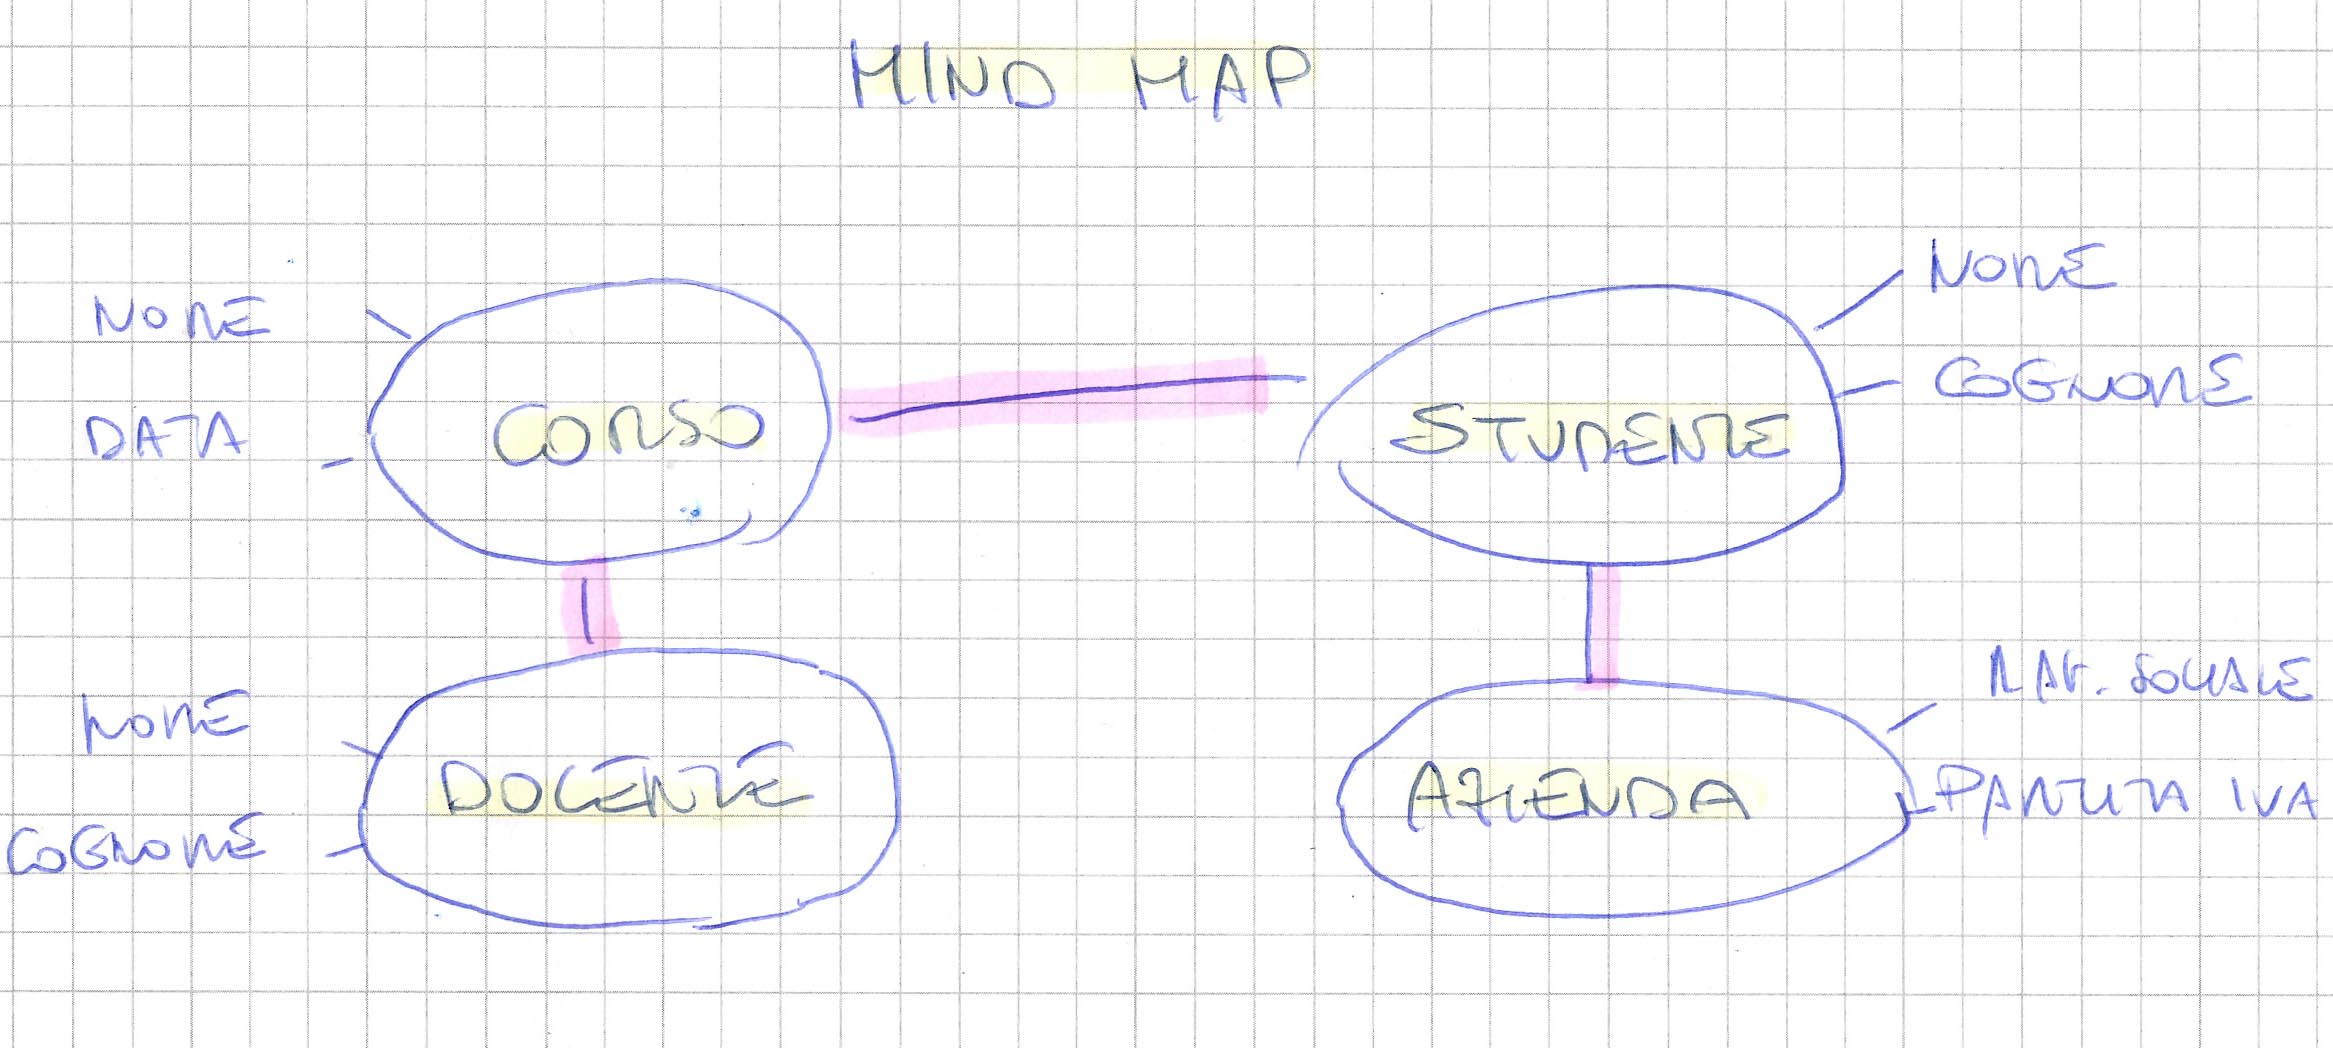 MIND MAP
NOME
DATA
CORSO
STUDENTE
NOME
COGNOME
NOME
COGNOME
DOCENTE
AZIENDA
RAG. SOCIALE
PARTITA IVA